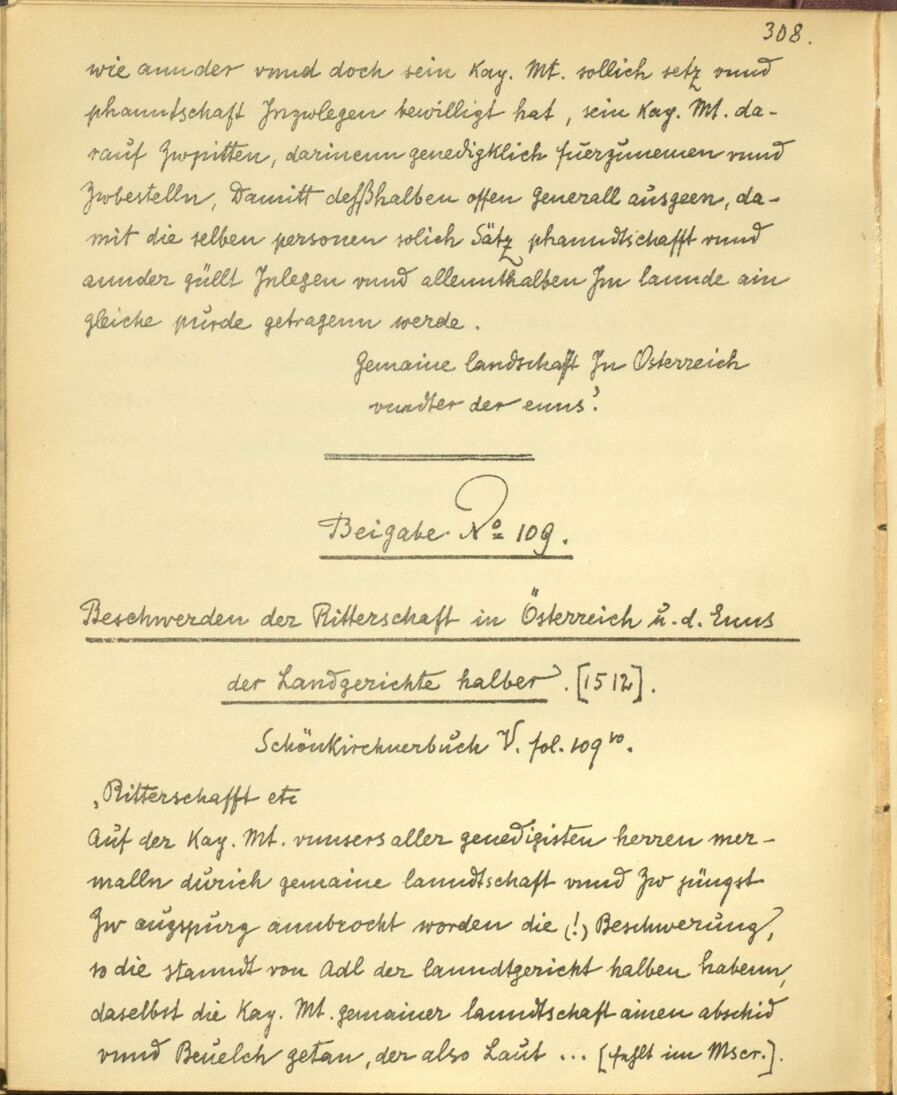 308.
wie annder vnnd doch sein Kay. Mt. sollich setz vnnd
phanndtschaft Inzwlegen bewilligt hat, sein Kay. Mt. da-
rauf Zwpitten, darinenn genedigklich fuerzunemen vnnd
Zwbestelln, Damitt desshalben offen Generall ausgeen, da-
mit die selben personen solich Sätz phanndtschafft vnnd
annder güllt Inlegen vnnd allennthalben Im lannde ain
gleiche purde getragenn werde.
Gemaine landschafft In Österreich
vnndter der enns.'
Beigabe No 109.
Beschwerden der Ritterschaft in Österreich u. d. Enns
der Landgerichte halber. [1512].
Schönkirchnerbuch V. fol. 109 vo.
'Ritterschafft etc
Auf der Kay. Mt. vnnsers aller genedigisten herren mer-
malln durich gemaine lanndtschaft vnnd Zw jüngst
Zw augspurg annbrocht worden die (!) Beschwerung,
so die stanndt von Adl der lanndtgericht halben habenn,
daselbst die Kay. Mt. gemainer lanndtschaft ainen abschid
vnnd Beuelch getan, der also Laut ... [fehlt im Mscr.].